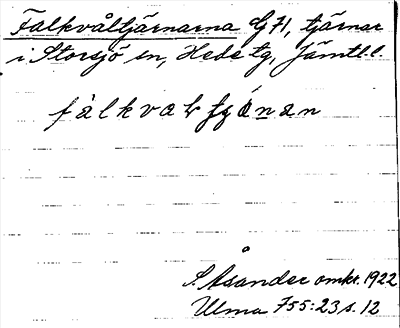 Falkvåltjärnarna G71, tjärnar
i Storsjö sn, Hede tg, Jämtl.l.
S. Åsander omkr. 1922
Ulma 755:23 s. 12